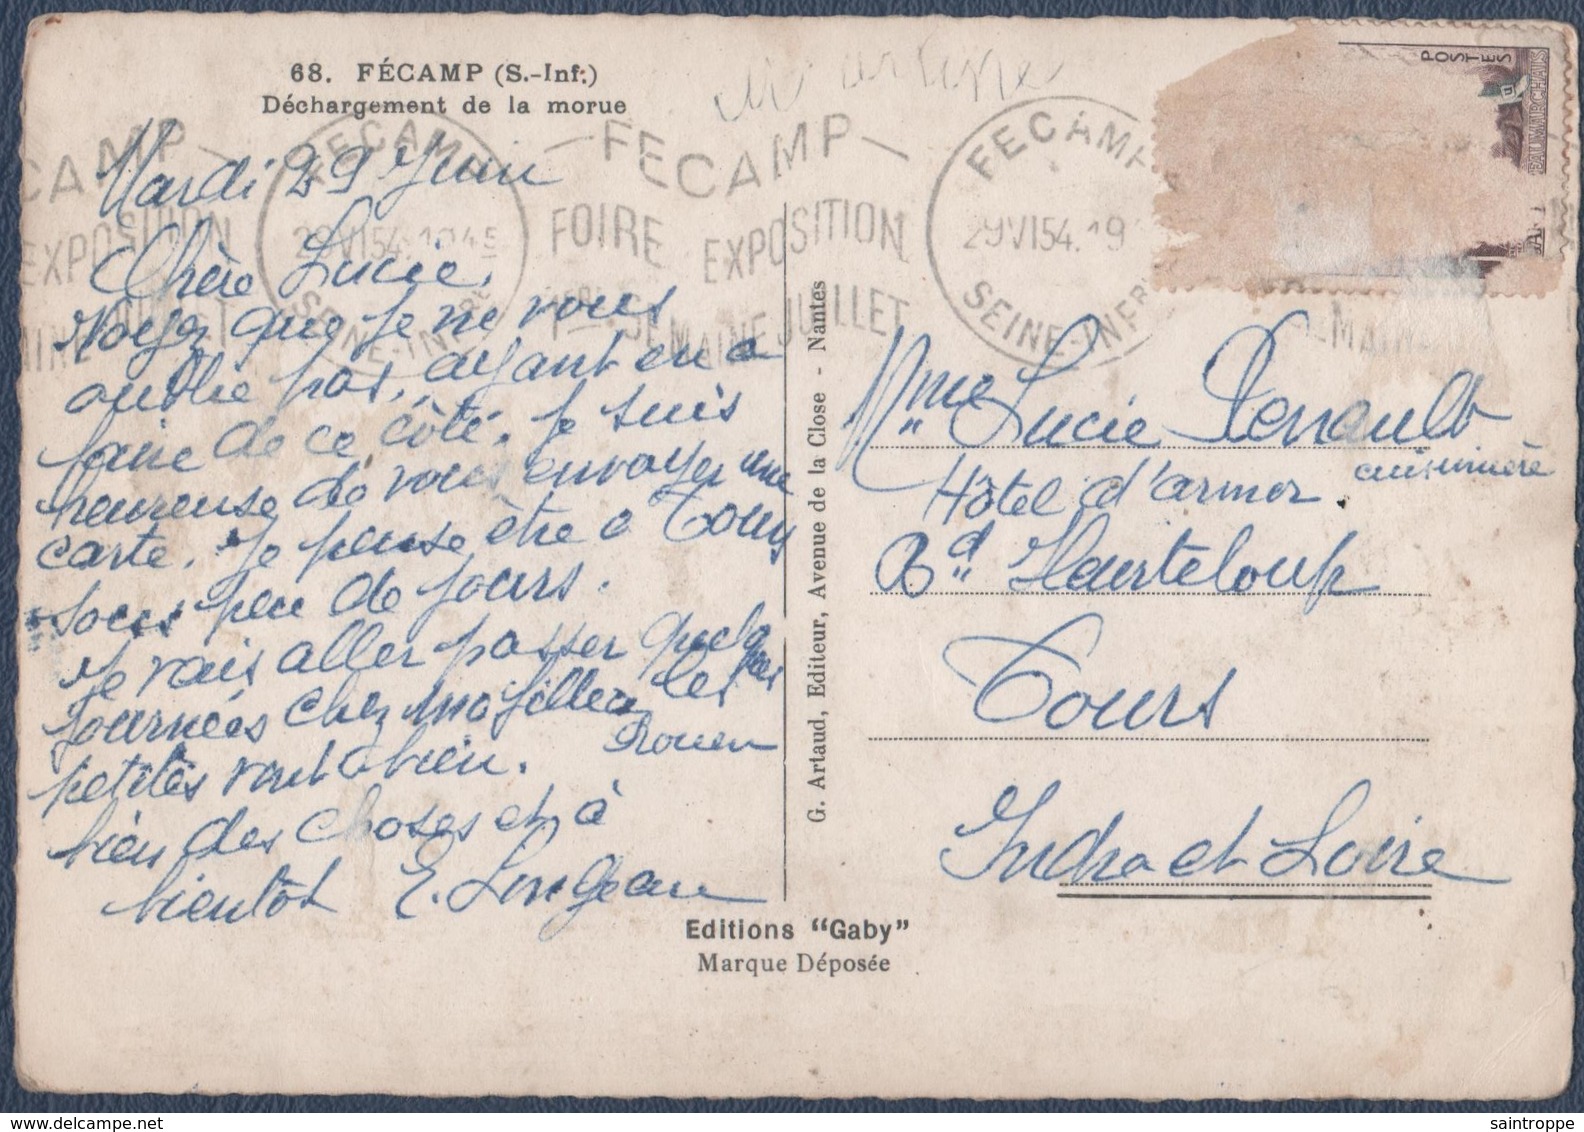 68. FÉCAMP (S.-Inf.)
Déchargement de la morue
FECAMP
FOIRE EXPOSITION
1ère SEMAINE JUILLET
FECAMP
29 VI 54. 1945
SEINE-INFRE
FECAMP
29 VI 54. 19
SEINE-INFRE
POSTES
BEAUMARCHAIS
Mardi 29 Juin
Chère Lucie,
Voyez que je ne vous
oublie pas, ayant en a
faire de ce côté. Je suis
heureuse de vous envoyer une
carte. Je pense être a Tours
sous peu de jours.
Je vais aller passer quelques
journées chez ma fille a les
Rouen
petites vont bien.
bien des choses et à
bientôt E.
Mme Lucie Renault
cuisinière
Hôtel d'armor
Bd Heurteloup
Tours
Indre et Loire
G. Artaud, Editeur, Avenue de la Close - Nantes
Editions "Gaby"
Marque Déposée
saintroppe